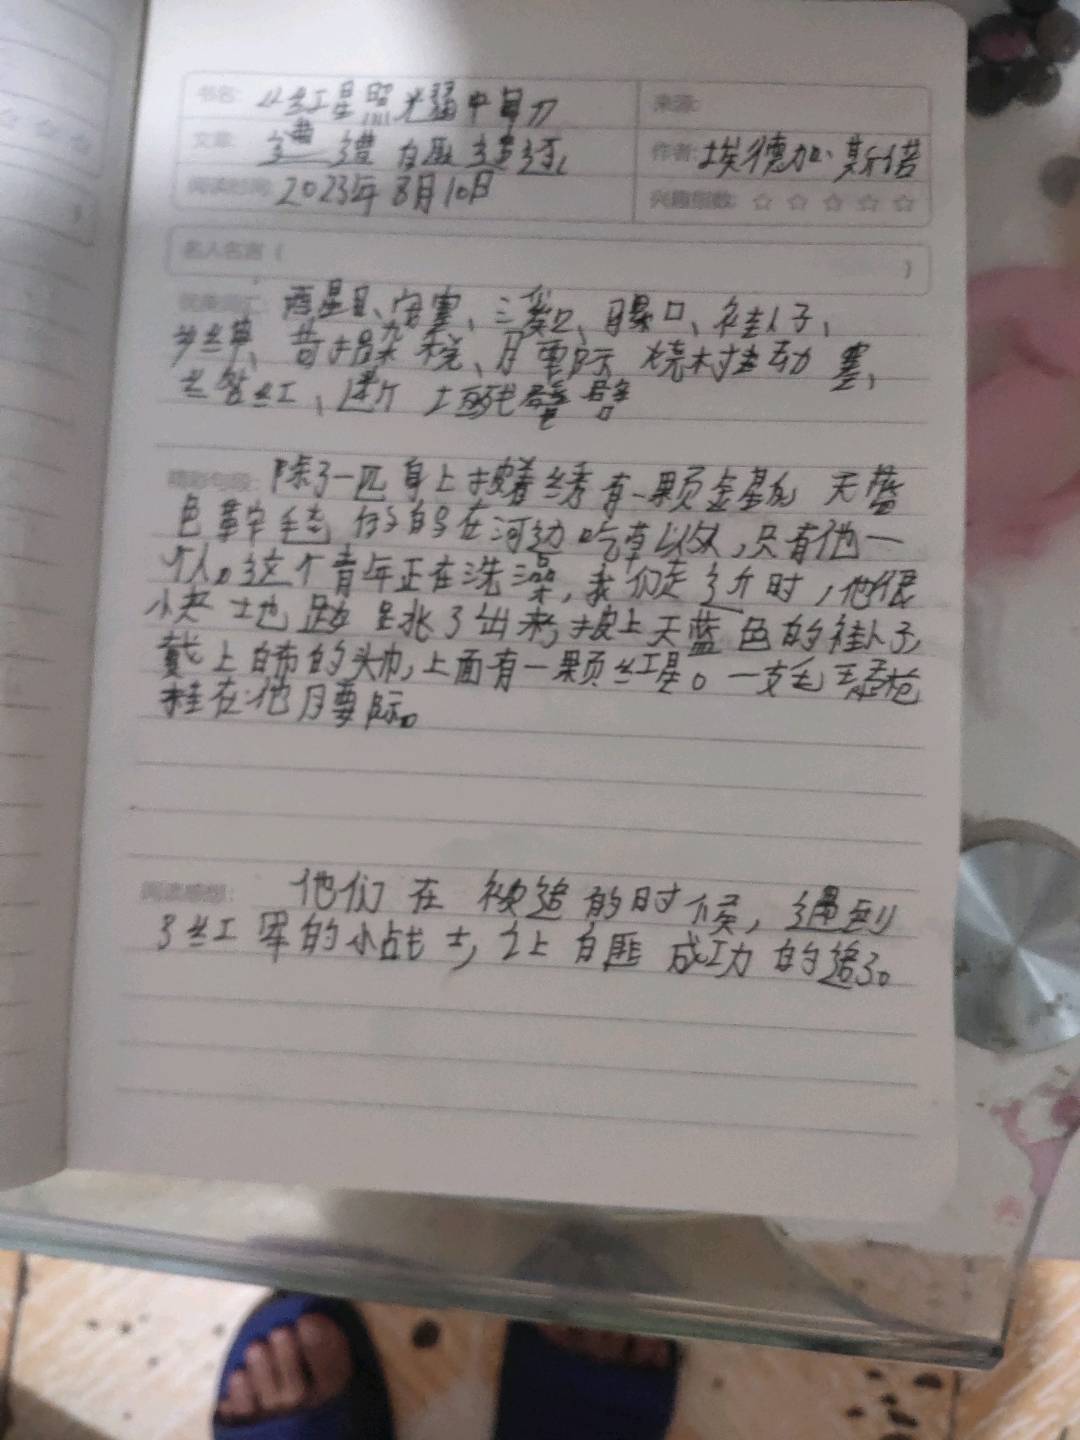 书名: 红星照光耀中国
来源:
文章: 遭白匪追逐
作者: 埃德加·斯诺
阅读时间: 2023年8月10日
兴趣指数: ☆ ☆ ☆ ☆ ☆
名人名言 ( )
酒星眼、安塞、三岔口、曝口、褂子、
苛捐杂税、腰际
残壁
精彩句段: 除了一匹身上披着绣有一颗金星的天蓝
色鞍毛 的马在河边吃草以外,只有他一
个人。这个青年正在洗澡,我们走近时,他很
快地跳了出来,披上天蓝色的褂子,
戴上白布的头巾,上面有一颗红星。一支毛瑟枪
挂在他腰际。
阅读感想: 他们在被追的时候,遇到
了红军的小战士,让白匪成功的追了。